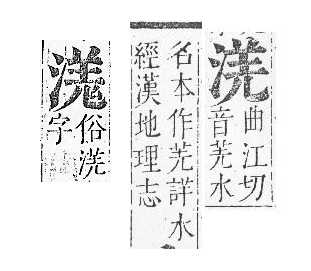 㳾
曲江切
音羌水
名本作羌詳水
經漢地理志
溬
俗㳾
字